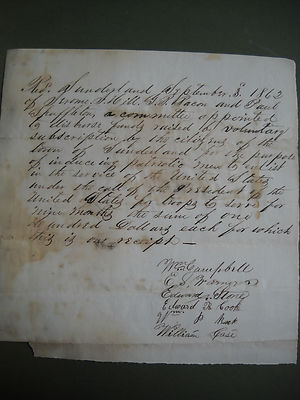 Recd. Sunderland September 8. 1862
of Jerome T. Hill. G. F. Bacon and Paul
Apallston, a committee appointed
to disburse funds raised by voluntary
subscription by the citizens of the
town of Sunderland for the purpose
of inducing patriotic men to enlist
in the service of the United States
under the call of the President of the
United States for troops to serve for
nine months the sum of one
Hundred Dollars each for which
this is our receipt —
Wm Campbell
E. S.
Edward Stone
Edward F. Cook
P Rook
William Case